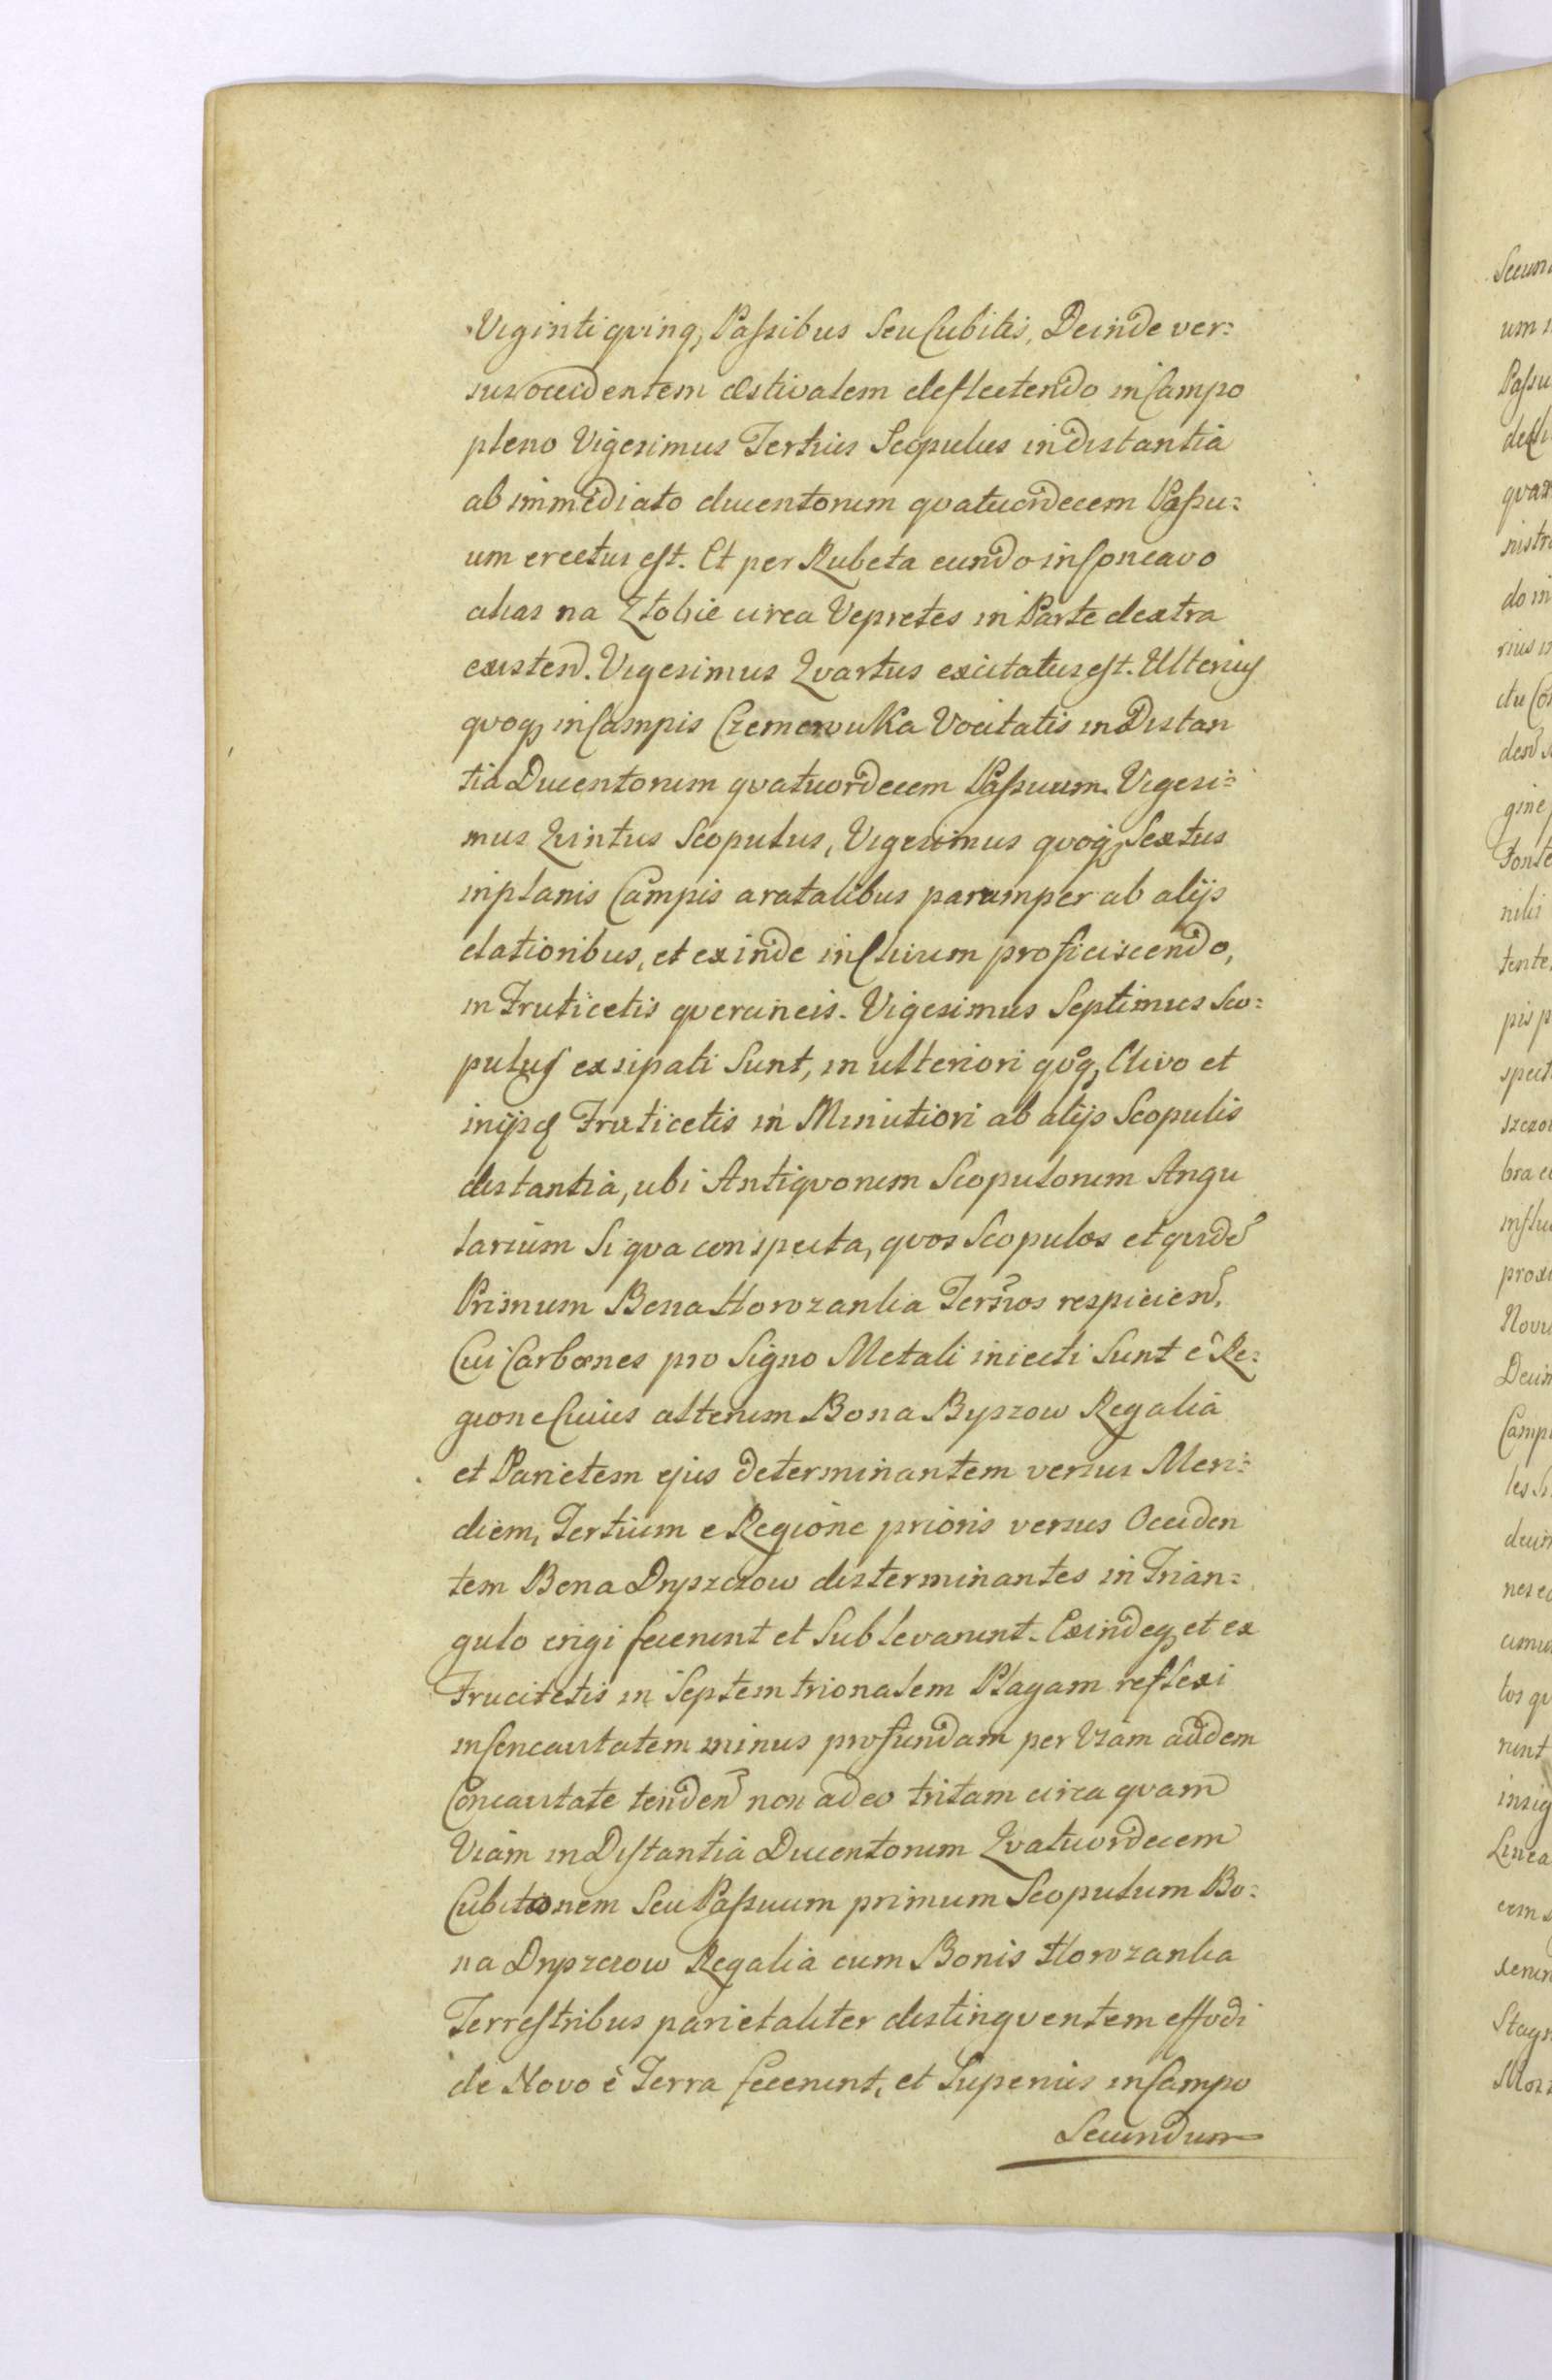 Viginti qvinq, Passibus Seu Cubitis, Deinde ver:
sus occidentem æstivalem deflectendo in Campo
pleno Vigesimus Tertius Scopulus in distantia
ab immediato ducentorum qvatuordecem Passu:
um erectus est. Et per Rubeta eundo in Concavo
alias na Ztobie circa Vepretes in Parte dextra
existend. Vigesimus Qvartus excitatus est. Ulterius
qvoq, in Campis Czemerwuka Vocitatis in Distan
tia Ducentorum qvatuordecem Passuum. Vigesi:
mus Qvintus Scopulus, Vigesimus qvoq, Sextus
in planis Campis aratalibus parumper ab alijs
elationibus, et exinde in Clivum proficiscendo,
in Fruticetis qverCineis. Vigesimus Septimus Sco:
pulus exsipati Sunt, in ulteriori qvoq, Clivo et
in ijsq Fruticetis in Minutiori ab alijs Scopulis
distantia, ubi Antiqvorum Scopulorum Angu
larium Siqva conspecta, qvos Scopulos et qvide
Primum Bona Horozanka Terrios respiciend.
Cui Carbones pro Signo Metali iniecti Sunt è Re:
gione Cuius alterum Bona Byszow Regalia
et Parietem ejus determinantem versus Meri:
diem, Tertium e Regione prioris versus Occiden
tem Bona Dryszczow disterminantes in Trian:
gulo erigi fecerunt et Sublevarunt. Exindeq, et ex
Frucitetis in Septemtrionalem Plagam reflexi
in Concavitatem minus profundam per Viam addem
Concavitate tenden non adeo tritam circa qvam
Viam in Distantia Ducentorum Qvatuordecem
Cubitorum Seu Passuum primum Scopulum Bo:
na Dryszczow Regalia cum Bonis Horozanka
Terrestribus parietaliter distingventem effodi
de Novo è Terra fecerunt, et Superius in Campo
Secundum